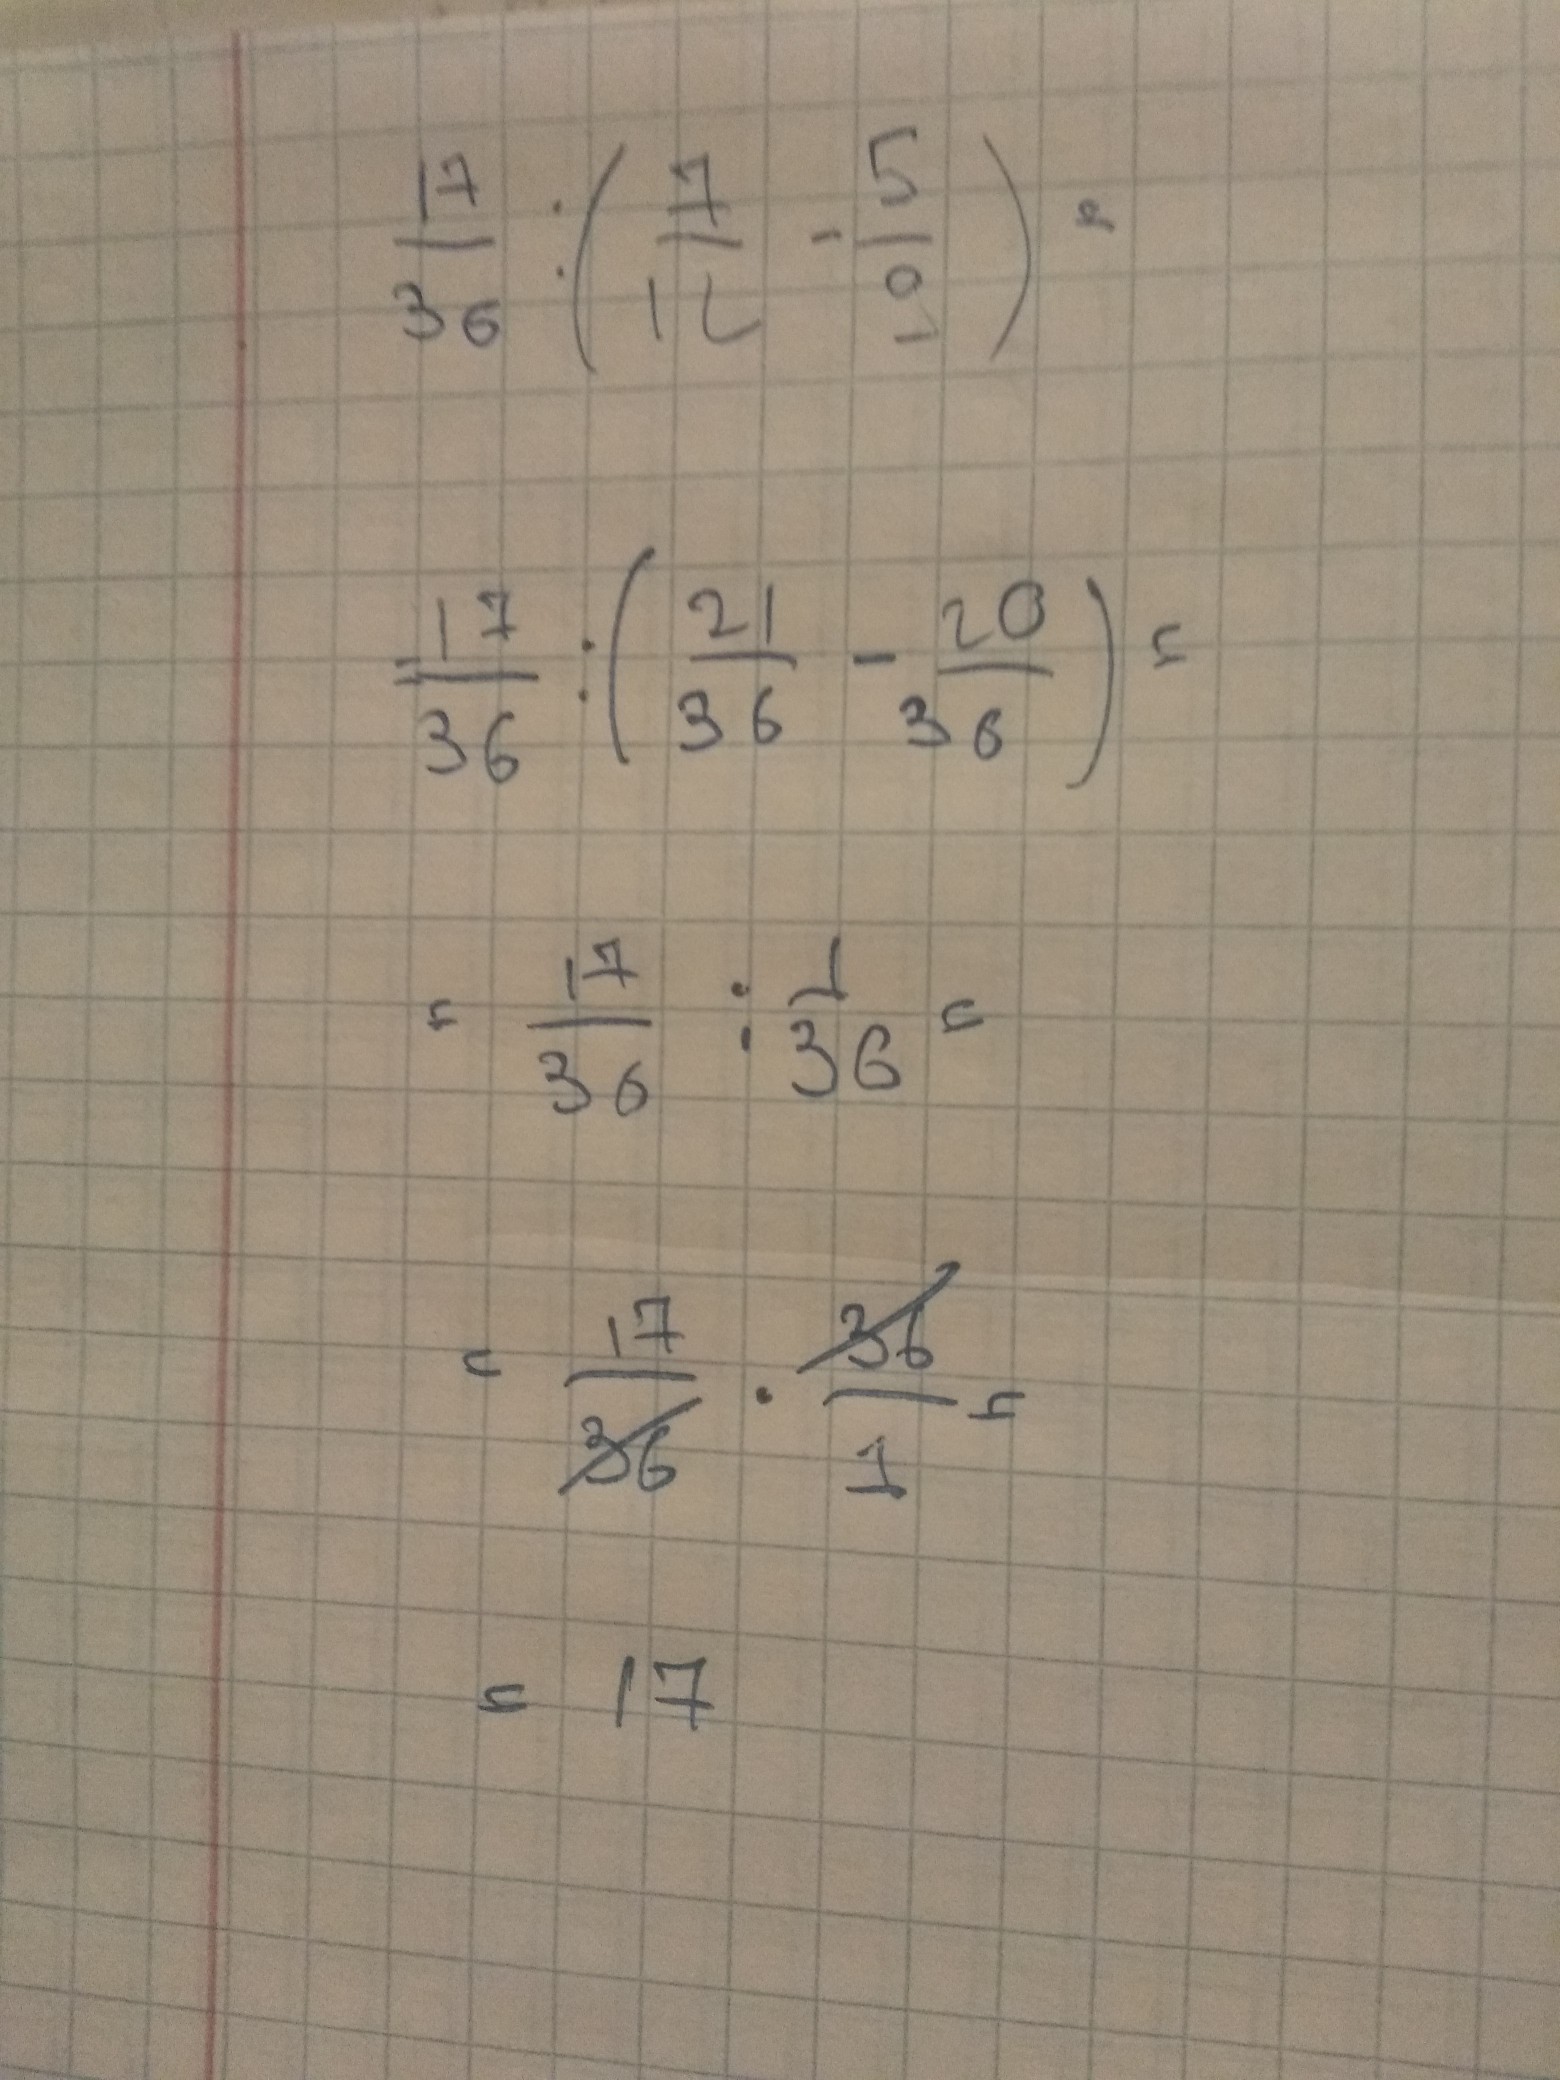 17/36 : (7/12 - 5/9) =
= 17/36 : (21/36 - 20/36) =
= 17/36 : 1/36 =
= 17/36 · 36/1 =
= 17